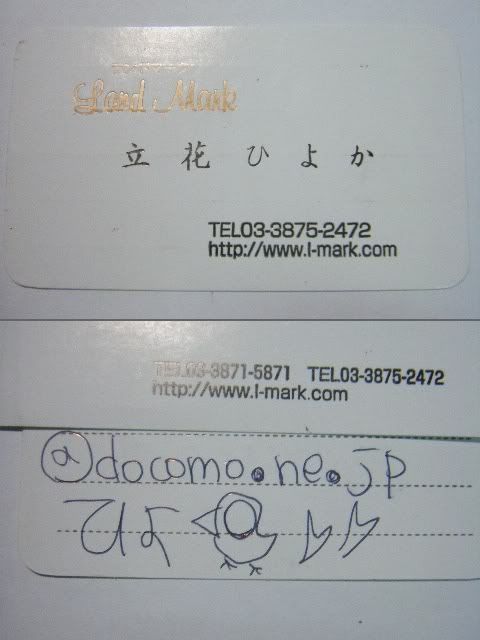 Land Mark
立花ひよか
TEL03-3875-2472
http://www.l-mark.com
TEL03-3871-5871 TEL03-3875-2472
http://www.l-mark.com
@docomo.ne.jp
ひよ